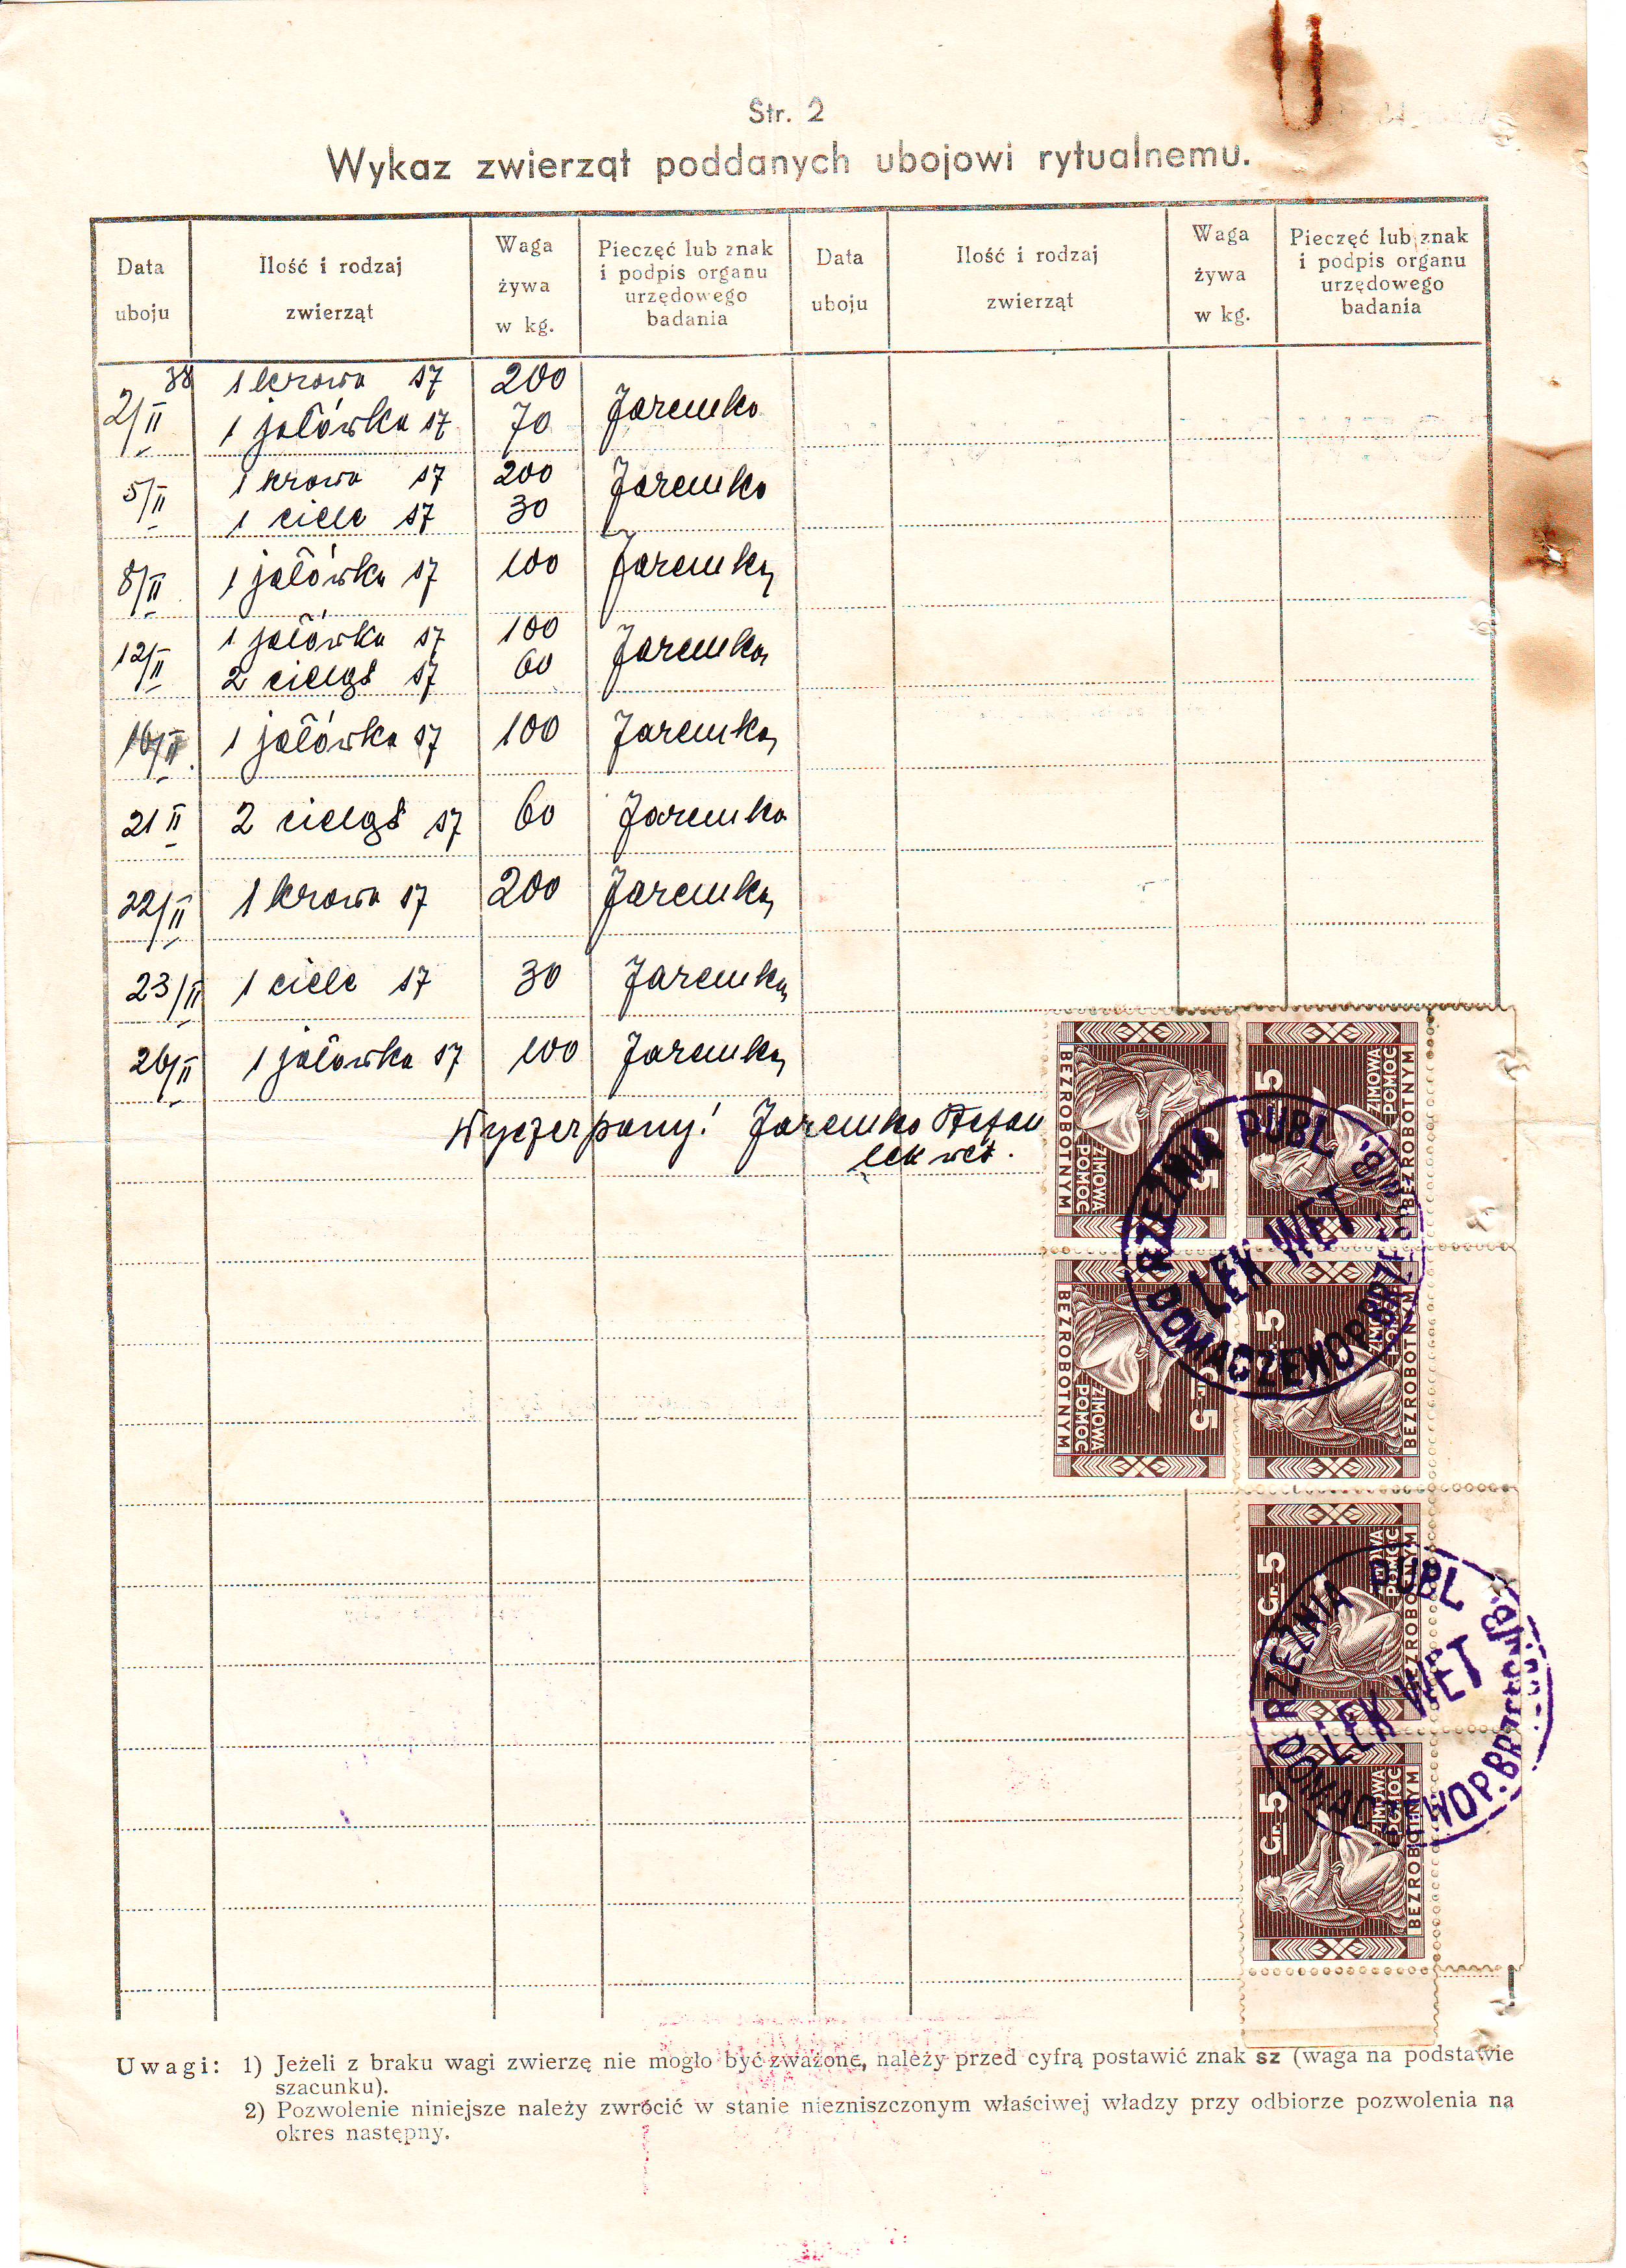 Str. 2
Wykaz zwierząt poddanych ubojowi rytualnemu.
Data uboju
Ilość i rodzaj zwierząt
Waga żywa w kg.
Pieczęć lub znak i podpis organu urzędowego badania
Data uboju
Ilość i rodzaj zwierząt
Waga żywa w kg.
Pieczęć lub znak i podpis organu urzędowego badania
2/II 38 1 krowa sz 200 Jaremko
1 jałówka sz 70
5/II 1 krowa sz 200 Jaremko
1 ciele sz 30
8/II 1 jałówka sz 100 Jaremko
12/II 1 jałówka sz 100 Jaremko
2 cieląt sz 60
16/II 1 jałówka sz 100 Jaremko
21 II 2 cieląt sz 60 Jaremko
22/II 1 krowa sz 200 Jaremko
23/II 1 ciele sz 30 Jaremko
26/II 1 jałówka sz 100 Jaremko
Wyczerpany! Jaremko Stefan
lek wet.
BEZROBOTNYM
ZIMOWA POMOC
5
5
ZIMOWA POMOC
BEZROBOTNYM
RZEŹNIA PUBL
LEK WET
DOMACZEWO P. BRZ
BEZROBOTNYM
ZIMOWA POMOC
5
5
BEZROBOTNYM
Gr. 5
POMOC
BEZROBOTNYM
RZEŹNIA PUBL
LEK WET
Gr. 5
ZIMOWA POMOC
BEZROBOTNYM
Uwagi: 1) Jeżeli z braku wagi zwierzę nie mogło być zważone, należy przed cyfrą postawić znak sz (waga na podstawie
szacunku).
2) Pozwolenie niniejsze należy zwrócić w stanie niezniszczonym właściwej władzy przy odbiorze pozwolenia na
okres następny.